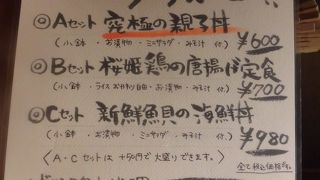 ◎Aセット 究極の親子丼
(小鉢・お漬物・ミニサラダ・みそ汁 付) ¥600
◎Bセット 桜姫鶏の唐揚げ定食
(小鉢・ライスお代わり自由・お漬物・みそ汁 付) ¥700
◎Cセット 新鮮魚貝の海鮮丼
(小鉢・お漬物・ミニサラダ・みそ汁 付) ¥980
〈A・Cセットは+50円で大盛りできます。〉
全て税込価格です。